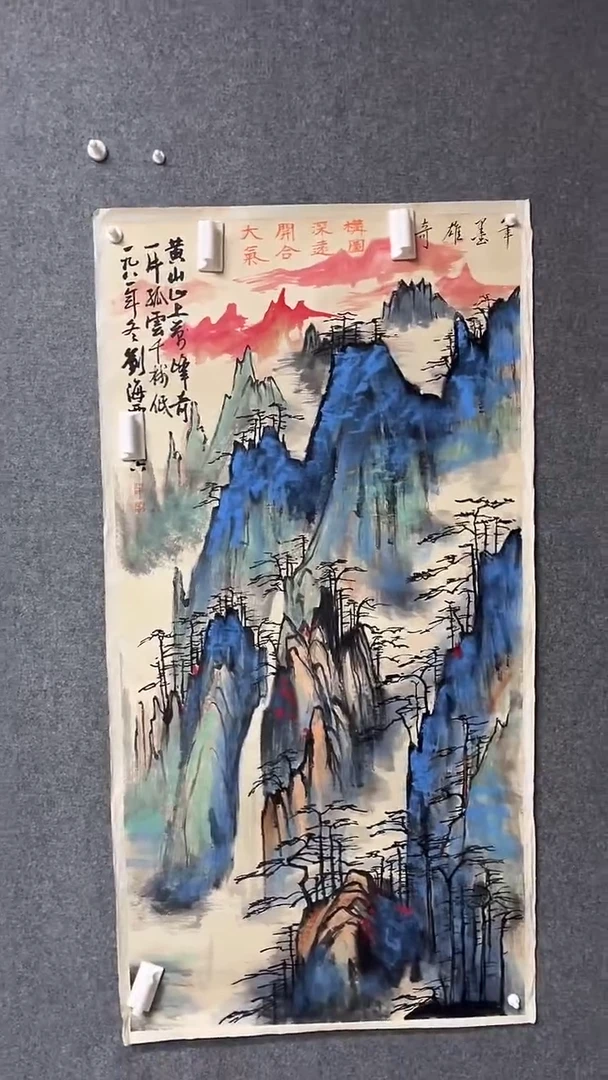 筆墨雄奇
構圖
深遠
開合
大氣
黄山山上萬峰奇
一片孤雲千樹低
一九八一年冬劉海